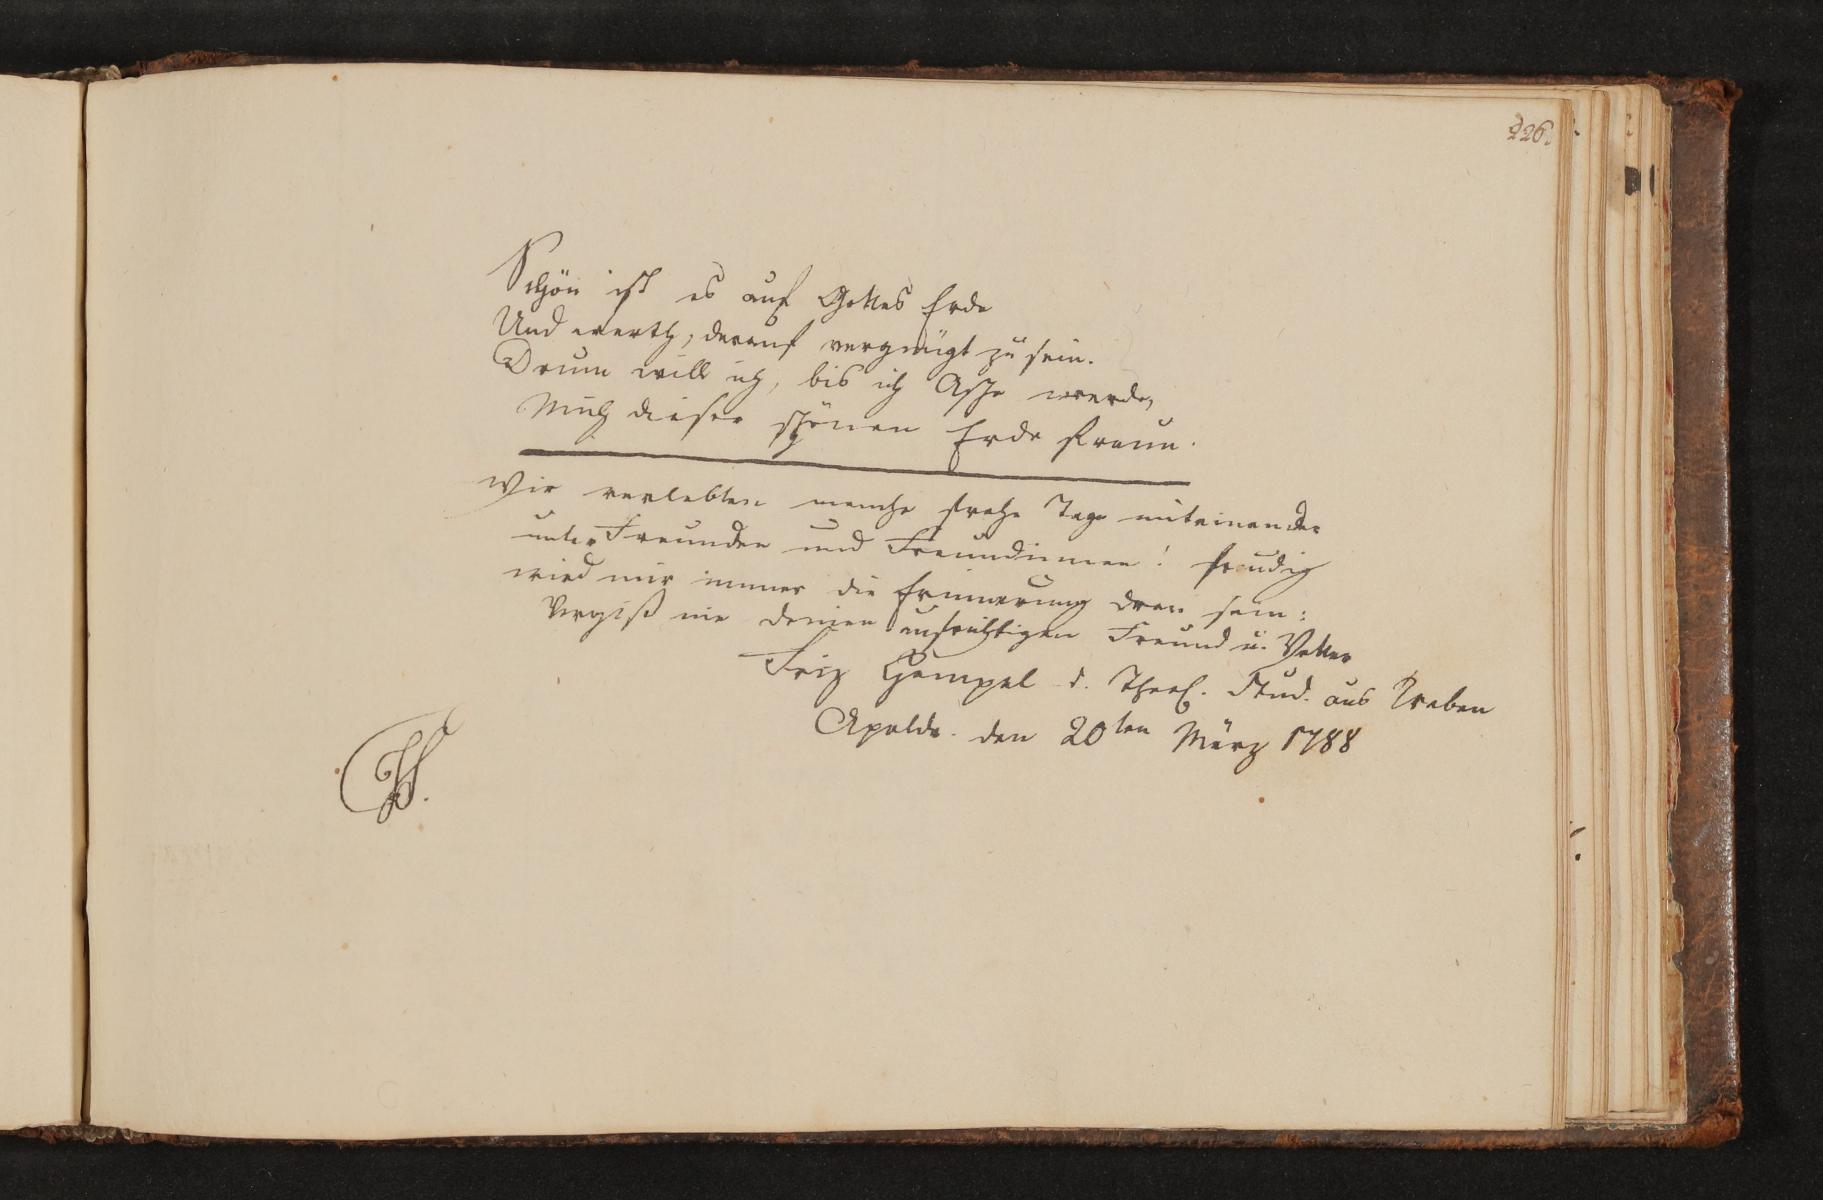 226.
Schön ist es auf Gottes Erde
Und werth, darauf vergnügt zu sein.
Drum will ich, bis ich Asche werde,
Mich dieser schönen Erde freun.
Wir verlebten manche frohe Tage miteinander
unter Freunden und Freundinnen! freudig
wird mir immer die Erinnerung dran sein:
Vergiß nie deinen aufrichtigen Freund u. Vetter
Friz Hempel d. Theol. Stud. aus Treben
Apolda. den 20ten März 1788